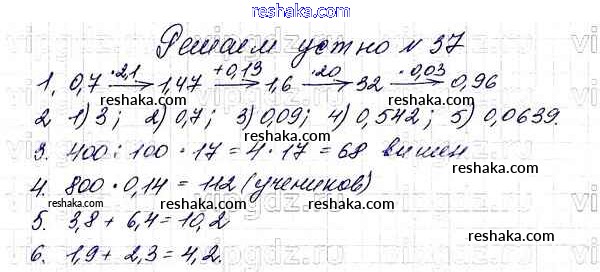 reshaka.com
Решаем устно № 37
1, 0,7 ·2,1→ 1,47 +0,13→ 1,6 ·20→ 32 ·0,03→ 0,96
reshaka.com reshaka.com reshaka.com
2 1) 3; 2) 0,7; 3) 0,09; 4) 0,542; 5) 0,0639.
3. 400 : 100 · 17 = 4 · 17 = 68 вишен
reshaka.com reshaka.com
4. 800 · 0,14 = 112 (учеников)
reshaka.com reshaka.com reshaka.com
5. 3,8 + 6,4 = 10,2
6. 1,9 + 2,3 = 4,2.
reshaka.com reshaka.com